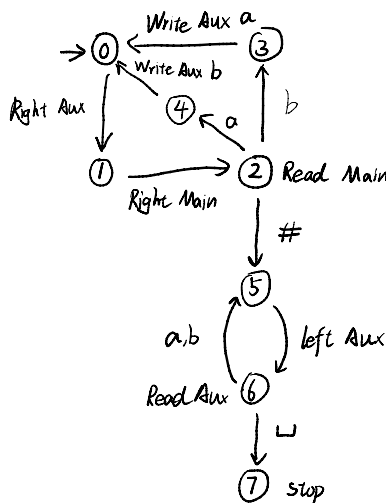 Write Aux a
0
3
Write Aux b
Right Aux
4
a
b
1
2
Read Main
Right Main
#
5
a,b
left Aux
Read Aux
6
⊔
7
stop